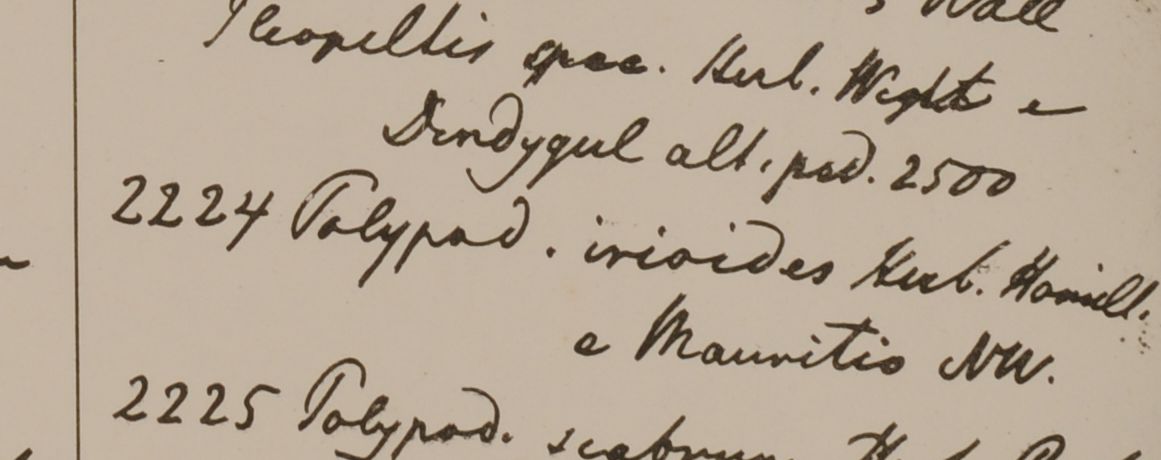 Wall
Pleopeltis spec. Herb. Wight e
Dindygul alt. ped. 2500
2224 Polypod. irioides Herb. Hamilt.
e Mauritio NW.
2225 Polypod.